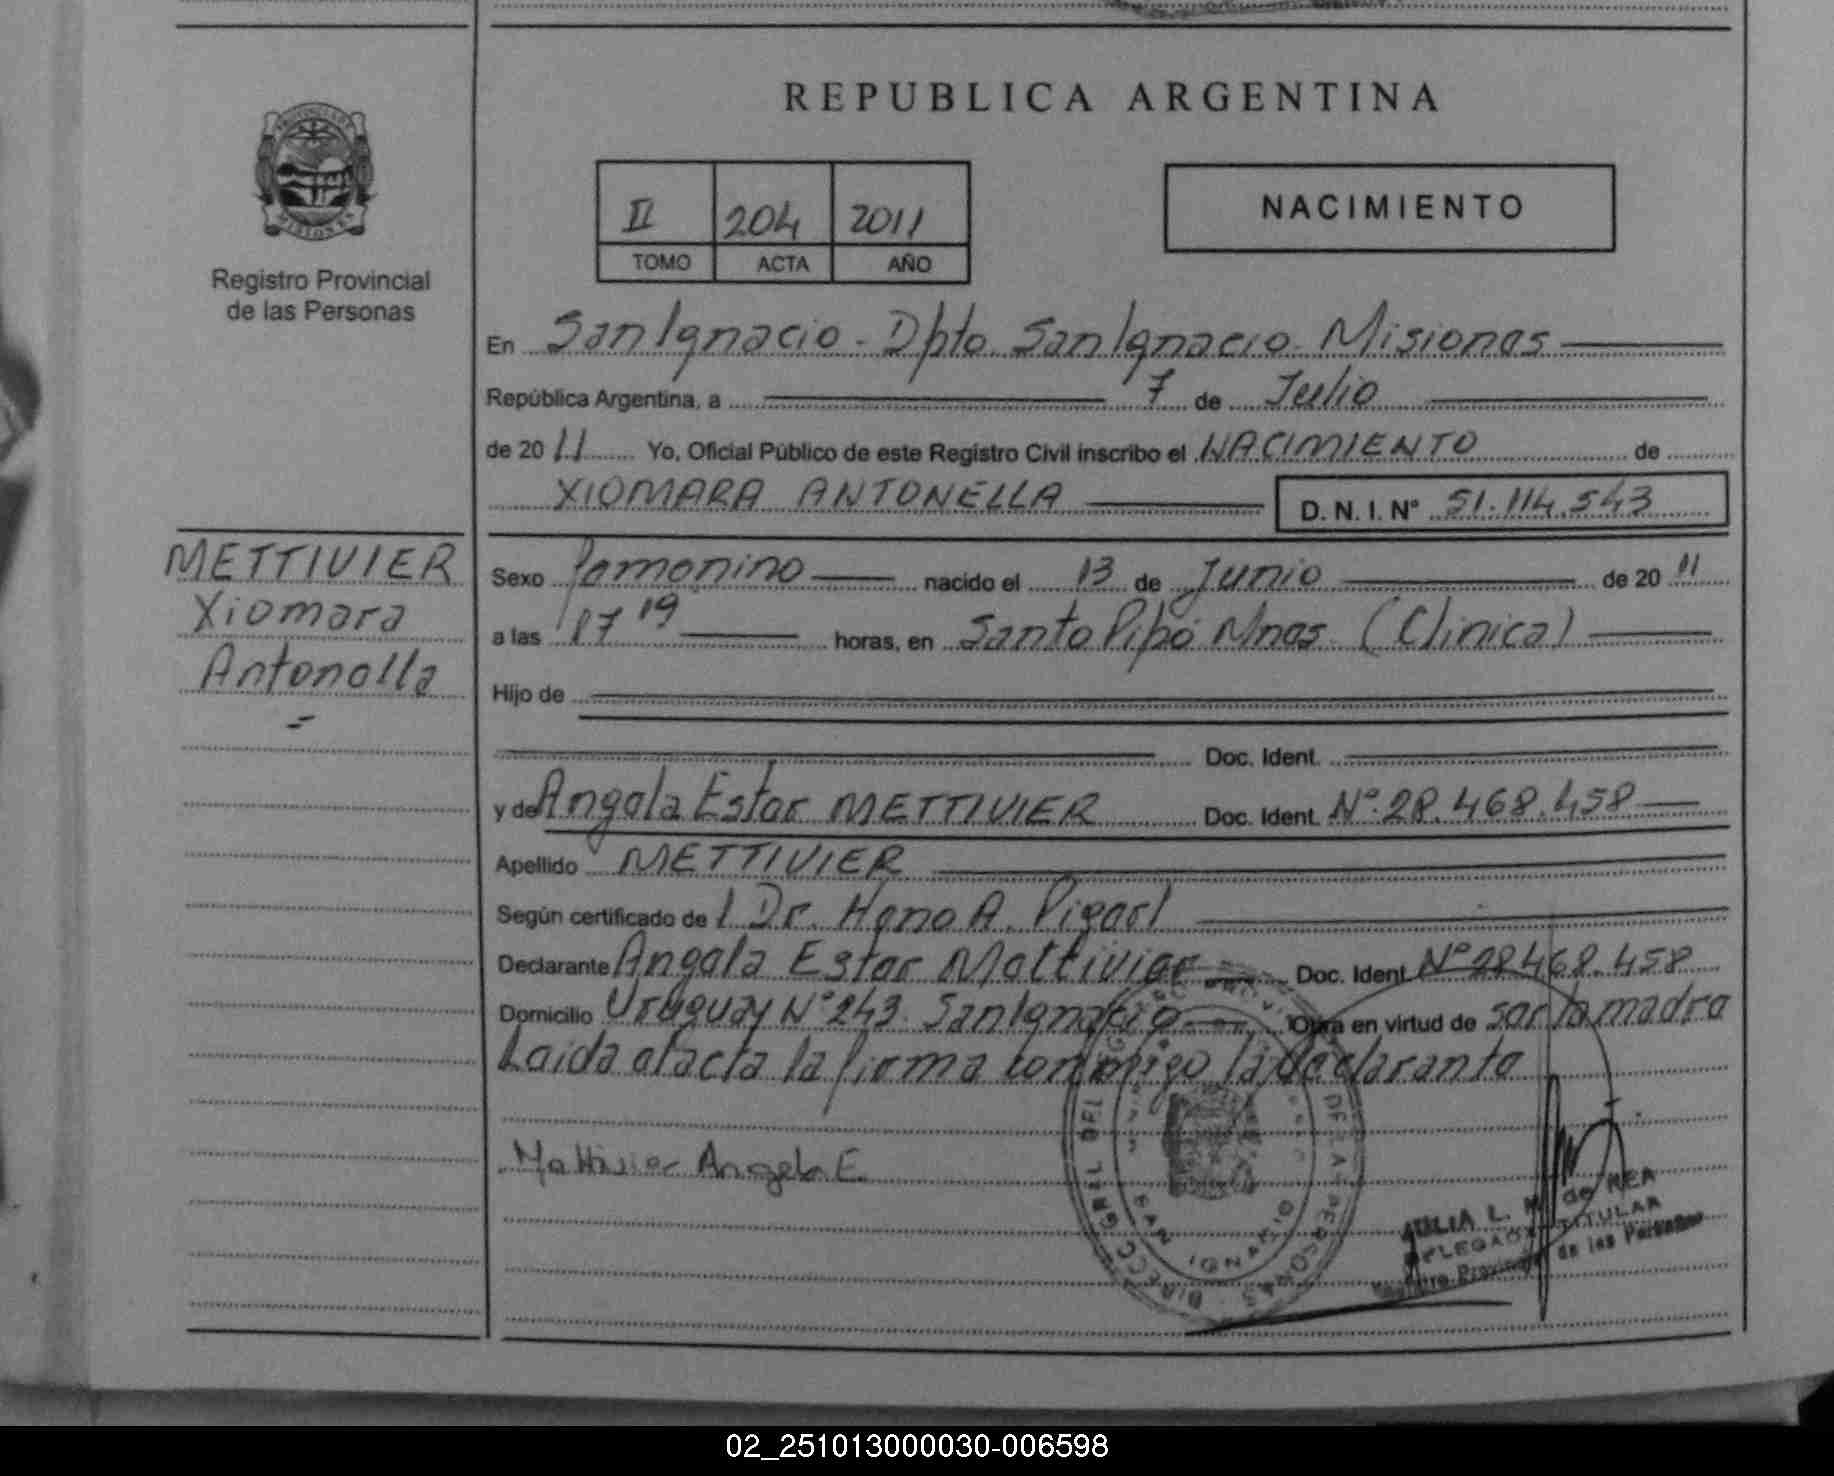 REPUBLICA ARGENTINA
PROVINCIA DE MISIONES
Registro Provincial
de las Personas
II 204 2011
TOMO ACTA AÑO
NACIMIENTO
En San Ignacio - Dpto. San Ignacio. Misiones
República Argentina, a 7 de Julio
de 2011 Yo, Oficial Público de este Registro Civil inscribo el NACIMIENTO de
XIOMARA ANTONELLA D. N. I. N° 51.114.543
METTIVIER
Xiomara
Antonella
Sexo femenino nacido el 13 de Junio de 2011
a las 17 19 horas, en Santo Pipó Mnes. (Clinica)
Hijo de
Doc. Ident.
y de Angela Ester METTIVIER Doc. Ident. N° 28.468.458
Apellido METTIVIER
Según certificado de l Dr. A.
Declarante Angela Ester Mettivier Doc. Ident. N° 28468.458
Domicilio Uruguay N° 243. San Ignacio Obra en virtud de ser la madre
Leida efecta la firma conmigo la declarante
Mettivier Angela E.
DIRECC. GRAL. DEL REGISTRO PROV. DE LA PERSONAS
SAN IGNACIO
JULIA L. M. de REA
DELEGADA TITULAR
Registro Provincial de las Personas
02_251013000030-006598